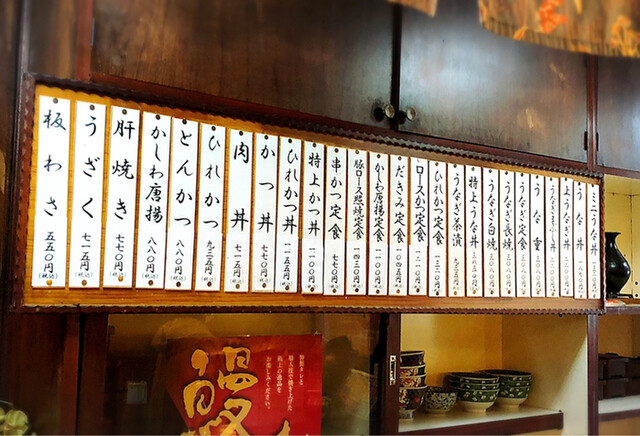 板わさ 五五〇円(税込)
うざく 七一五円
肝焼き 七七〇円(税込)
かしわ唐揚 八八〇円(税込)
とんかつ 八八〇円(税込)
ひれかつ 九三五円(税込)
肉丼 七一五円
かつ丼 七七〇円
ひれかつ丼 一一五五円
特上かつ丼 一一〇〇円
串かつ定食 七七〇円
豚ロース照焼定食 一四三〇円
かしわ唐揚定食 一一〇〇円
だきみ定食 一〇四五円
ロースかつ定食
ひれかつ定食
うなぎ茶漬
特上うな丼
うなぎ白焼
うなぎ長焼
うなぎ定食
うな重
上うな丼
うな丼
ミニうな丼
特製タレと
職人技で焼き上げた
極上の逸品を
お楽しみください。
鰻